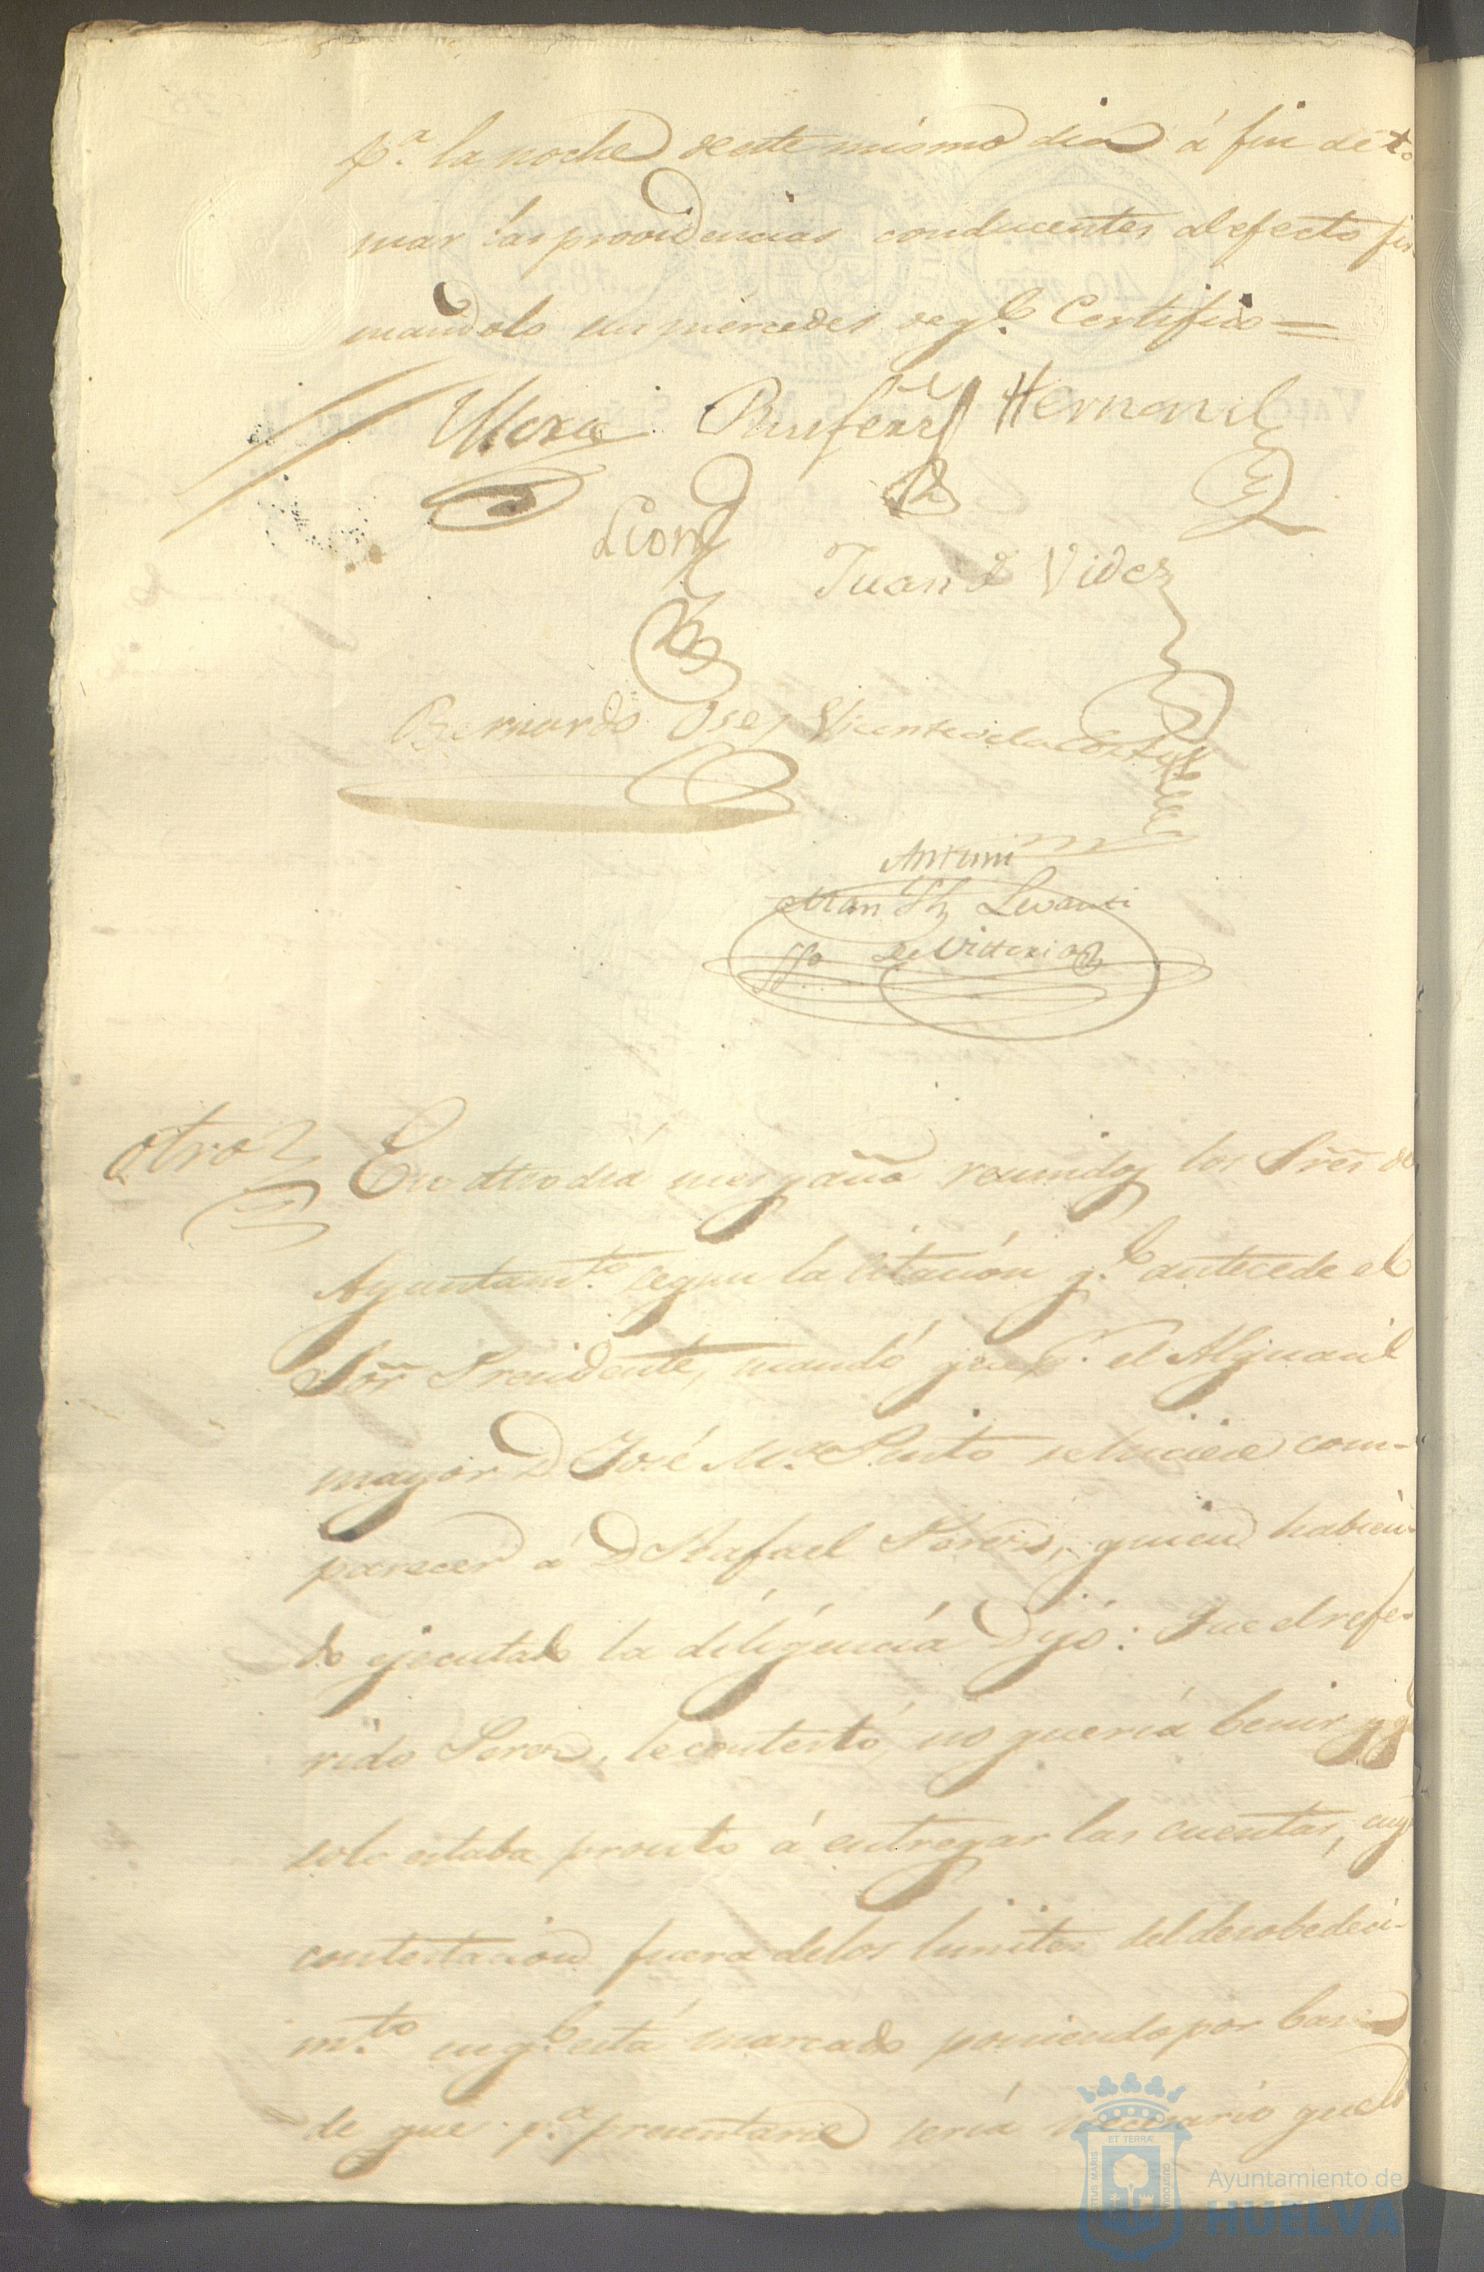 p.ª la noche de este mismo dia á fin de to
mar las providencias conducentes al efecto fir
mandolo sus mercedes de q.e Certifico =
Ulloa Hernand
Leon Juan Videz
Bernardo Vicente de la Corte
Ante mi
Man Levanti
SSo De Vittoria
otro
En otro dia mes y año reunidos los Sres de
Ayuntam.to segun la citacion q.e antecede el
Sor Presidente, mandó que p.r el Alguacil
mayor D José M.ª Pinto se hiciese com-
parecer á D Rafael Perez, quien habien
do ejecutado la diligencia Dijo: Que el refe-
rido Perez, le contestó, no queria benir y q
solo estaba pronto á entregar las cuentas, cuy
contestacion fuera de los limites del desobedeci-
m.to en q.e está marcado poniendo por base
de que p.ª presentarse seria necesario que lo
ET TERRÆ
Ayuntamiento de
HUELVA